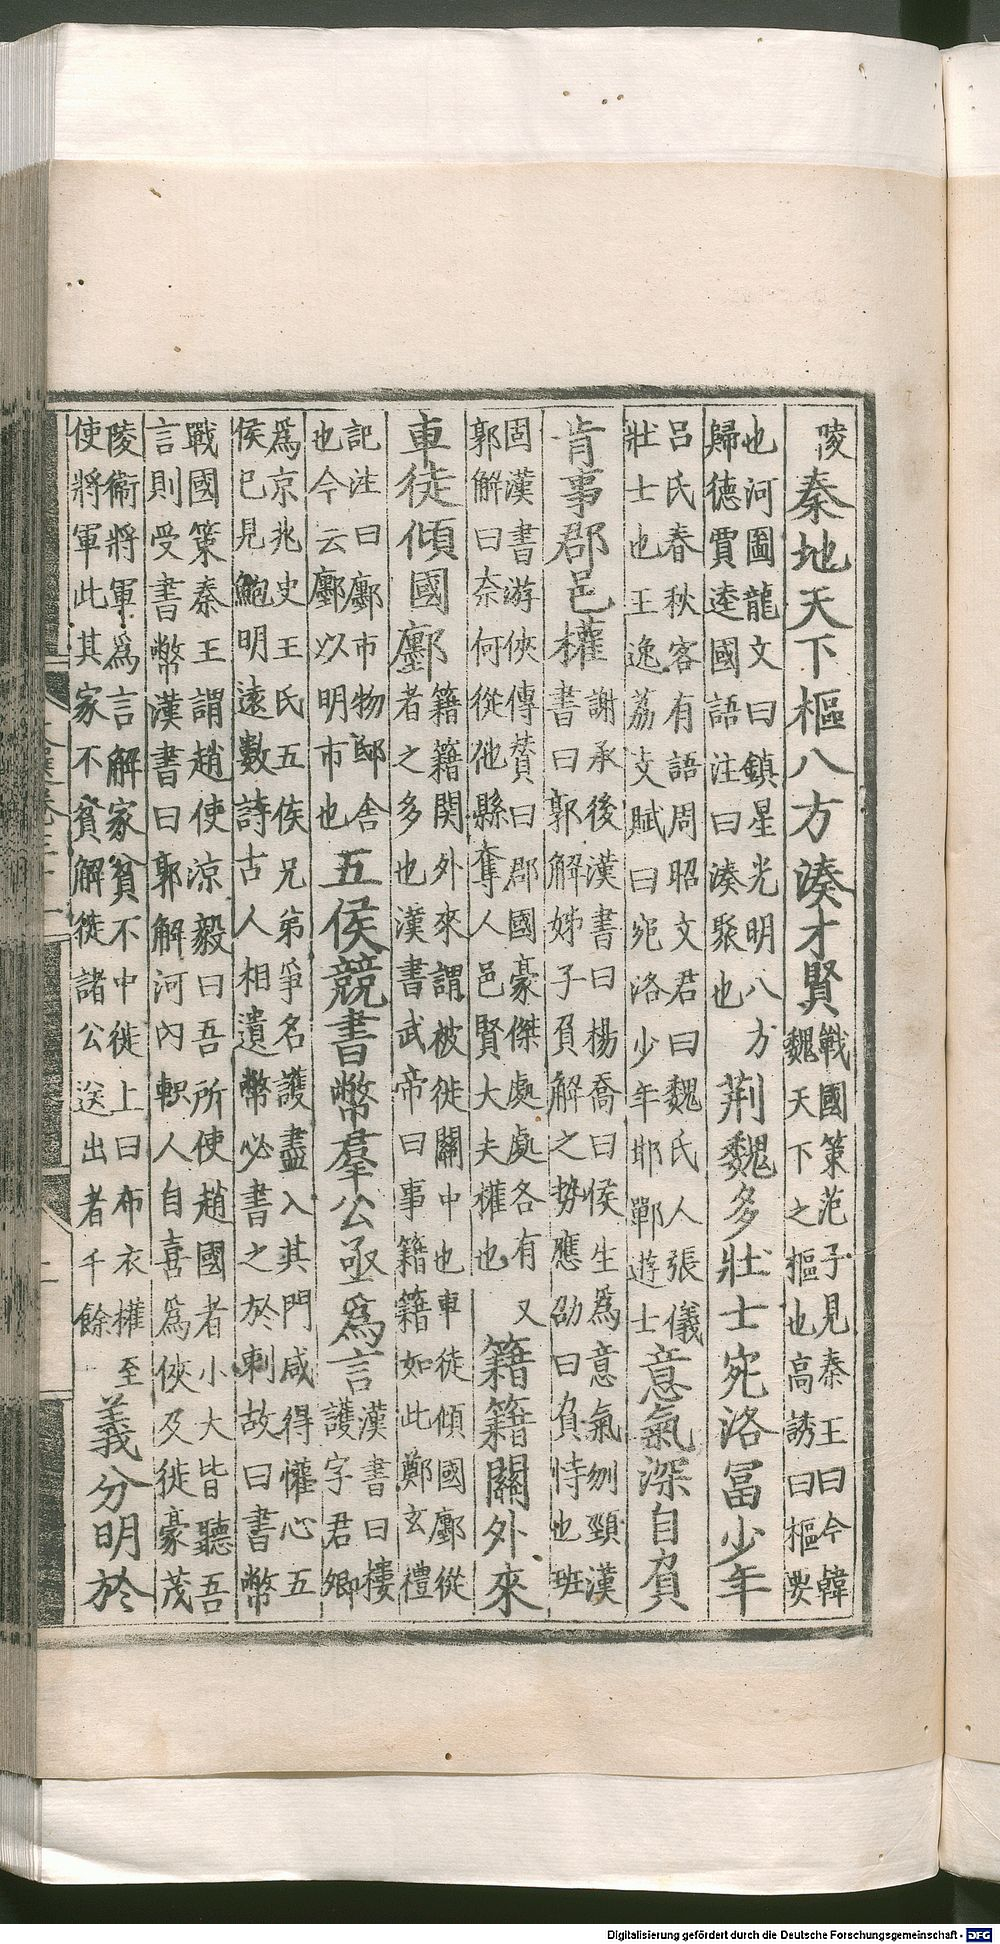 陵
秦地天下樞八方湊才賢
戰國策范子見秦王曰今韓
魏天下之樞也高誘曰樞要
也河圖龍文曰鎮星光明八方
歸德賈逵國語注曰湊聚也
荊魏多壯士宛洛冨少年
呂氏春秋客有語周昭文君曰魏氏人張儀
壯士也王逸荔支賦曰宛洛少年邯鄲遊士
意氣深自負
肯事郡邑權
謝承後漢書曰楊喬曰侯生為意氣刎頸漢
書曰郭解姊子負解之勢應劭曰負恃也班
固漢書游俠傳贊曰郡國豪傑處處各有又
郭解曰奈何從他縣奪人邑賢大夫權也
籍籍關外來
車徒傾國鄽
籍籍関外來謂被徙關中也車徒傾國鄽從
者之多也漢書武帝曰事籍籍如此鄭玄禮
記注曰鄽市物邸舍
也今云鄽以明市也
五侯競書幣羣公亟為言
漢書曰樓
護字君卿
為京兆史王氏五侯兄弟爭名護盡入其門咸得懽心五
侯已見鮑明遠數詩古人相遺幣必書之於刺故曰書幣
戰國策秦王謂趙使涼毅曰吾所使趙國者小大皆聽吾
言則受書幣漢書曰郭解河內軹人自喜為俠及徙豪茂
陵衞將軍為言解家貧不中徙上曰布衣權至
使將軍此其家不貧解徙諸公送出者千餘
義分明於
Digitalisierung gefördert durch die Deutsche Forschungsgemeinschaft - DFG